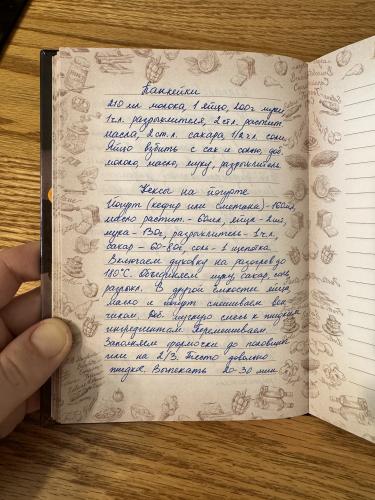 Панкейки
210 мл молока, 1 яйцо, 200 г муки,
1 ч.л. разрыхлителя, 2 ст.л. растит.
масла, 2 ст.л. сахара, 1/2 ч.л. соли.
Яйцо взбить с сах и солью, доб.
молоко, масло, муку, разрыхлитель.
Кексы на йогурте
Йогурт (кефир или сметана) - 160мл,
масло растит. - 60мл, яйца - 2 шт,
мука - 130г, разрыхлитель - 1 ч.л.,
сахар - 60-80г, соль - 1 щепотка.
Включаем духовку на разогрев до
180°С. Объединяем муку, сахар, соль,
разрыхл. В другой ёмкости яйца,
масло и йогурт смешиваем вен-
чиком. Доб. жидкую смесь к
ингредиентам. Перемешиваем.
Заполняем формочки до половины
или на 2/3. Тесто довольно
жидкое. Выпекать 20-30 мин.